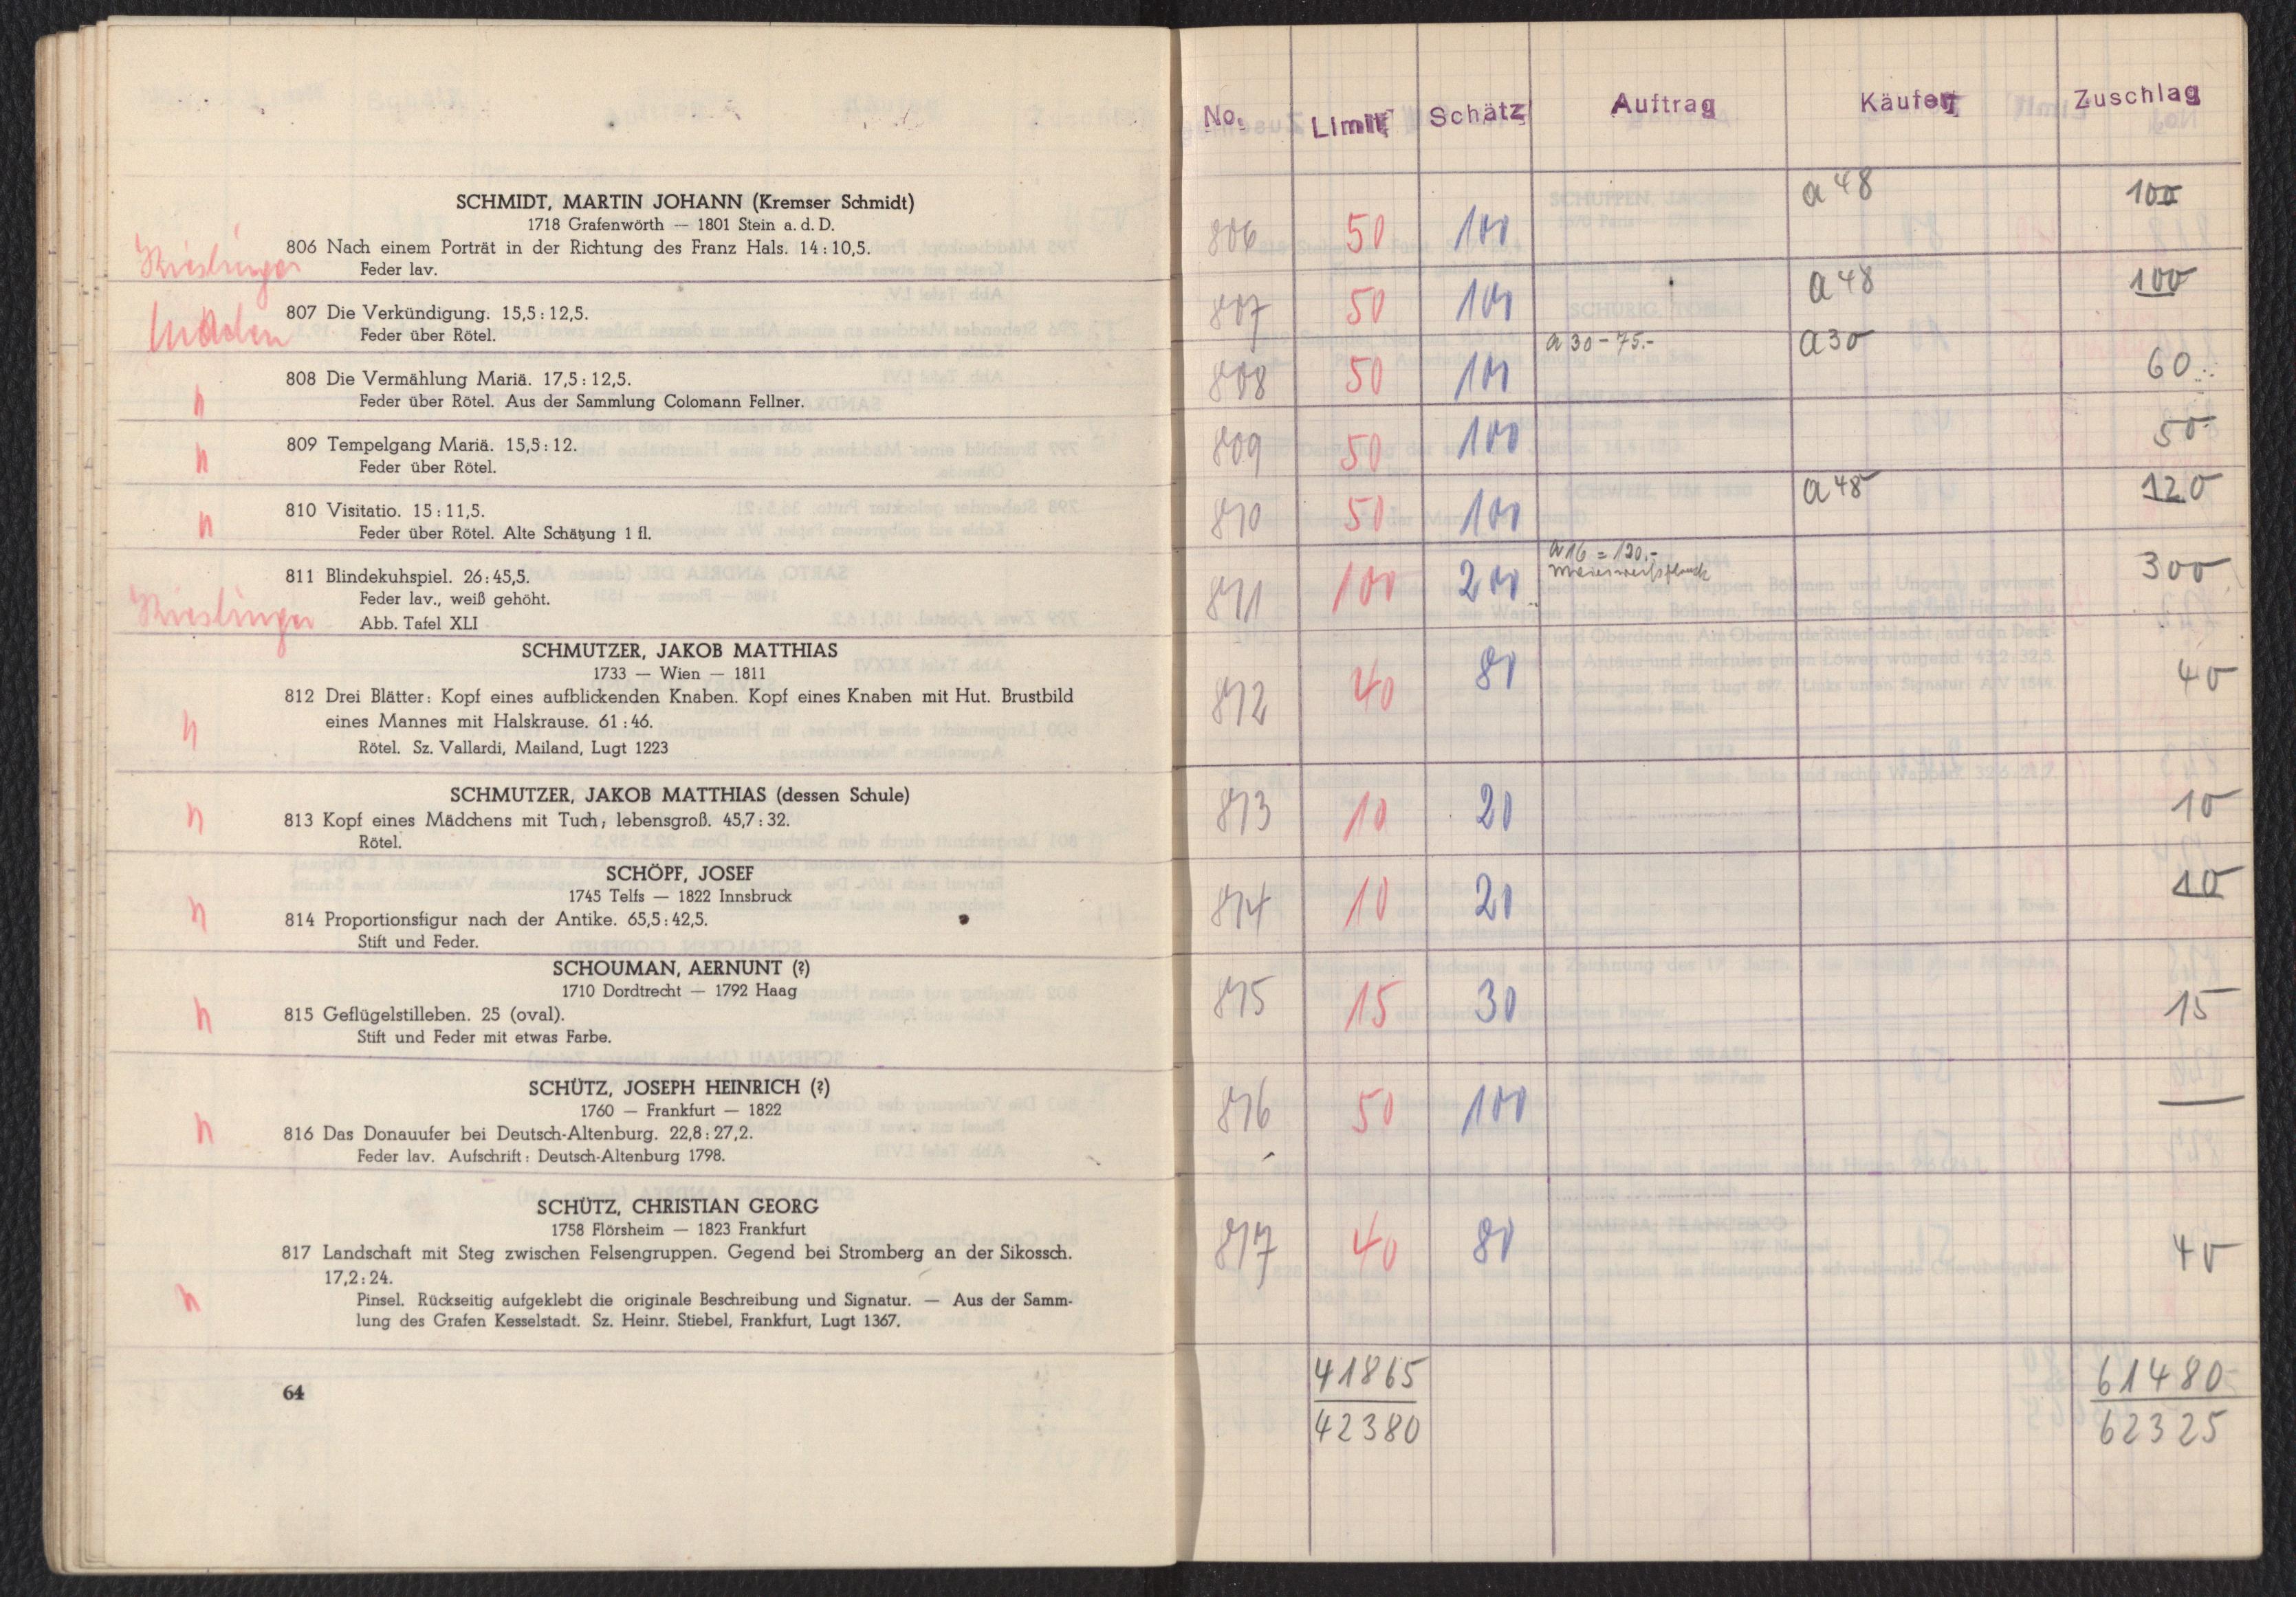 SCHMIDT, MARTIN JOHANN (Kremser Schmidt)
1718 Grafenwörth — 1801 Stein a. d. D.
806 Nach einem Porträt in der Richtung des Franz Hals. 14 : 10,5.
Feder lav.
807 Die Verkündigung. 15,5 : 12,5.
Feder über Rötel.
808 Die Vermählung Mariä. 17,5 : 12,5.
Feder über Rötel. Aus der Sammlung Colomann Fellner.
809 Tempelgang Mariä. 15,5 : 12.
Feder über Rötel.
810 Visitatio. 15 : 11,5.
Feder über Rötel. Alte Schätzung 1 fl.
811 Blindekuhspiel. 26 : 45,5.
Feder lav., weiß gehöht.
Abb. Tafel XLI
SCHMUTZER, JAKOB MATTHIAS
1733 — Wien — 1811
812 Drei Blätter: Kopf eines aufblickenden Knaben. Kopf eines Knaben mit Hut. Brustbild
eines Mannes mit Halskrause. 61 : 46.
Rötel. Sz. Vallardi, Mailand, Lugt 1223
SCHMUTZER, JAKOB MATTHIAS (dessen Schule)
813 Kopf eines Mädchens mit Tuch; lebensgroß. 45,7 : 32.
Rötel.
SCHÖPF, JOSEF
1745 Telfs — 1822 Innsbruck
814 Proportionsfigur nach der Antike. 65,5 : 42,5.
Stift und Feder.
SCHOUMAN, AERNUNT (?)
1710 Dordtrecht — 1792 Haag
815 Geflügelstilleben. 25 (oval).
Stift und Feder mit etwas Farbe.
SCHÜTZ, JOSEPH HEINRICH (?)
1760 — Frankfurt — 1822
816 Das Donauufer bei Deutsch-Altenburg. 22,8 : 27,2.
Feder lav. Aufschrift: Deutsch-Altenburg 1798.
SCHÜTZ, CHRISTIAN GEORG
1758 Flörsheim — 1823 Frankfurt
817 Landschaft mit Steg zwischen Felsengruppen. Gegend bei Stromberg an der Sikossch.
17,2 : 24.
Pinsel. Rückseitig aufgeklebt die originale Beschreibung und Signatur. — Aus der Samm-
lung des Grafen Kesselstadt. Sz. Heinr. Stiebel, Frankfurt, Lugt 1367.
64
No. Limit Schätz Auftrag Käufer Zuschlag
806 50 100 a 48 100
807 50 100 a 48 100
808 50 100 a 30 - 75.- a 30 60
809 50 100 50
810 50 100 a 48 120
811 100 200 a 16 = 120.- 300
812 40 80 40
813 10 20 10
814 10 20 10
815 15 30 15
816 50 100 —
817 40 80 40
41865 61480
42380 62325